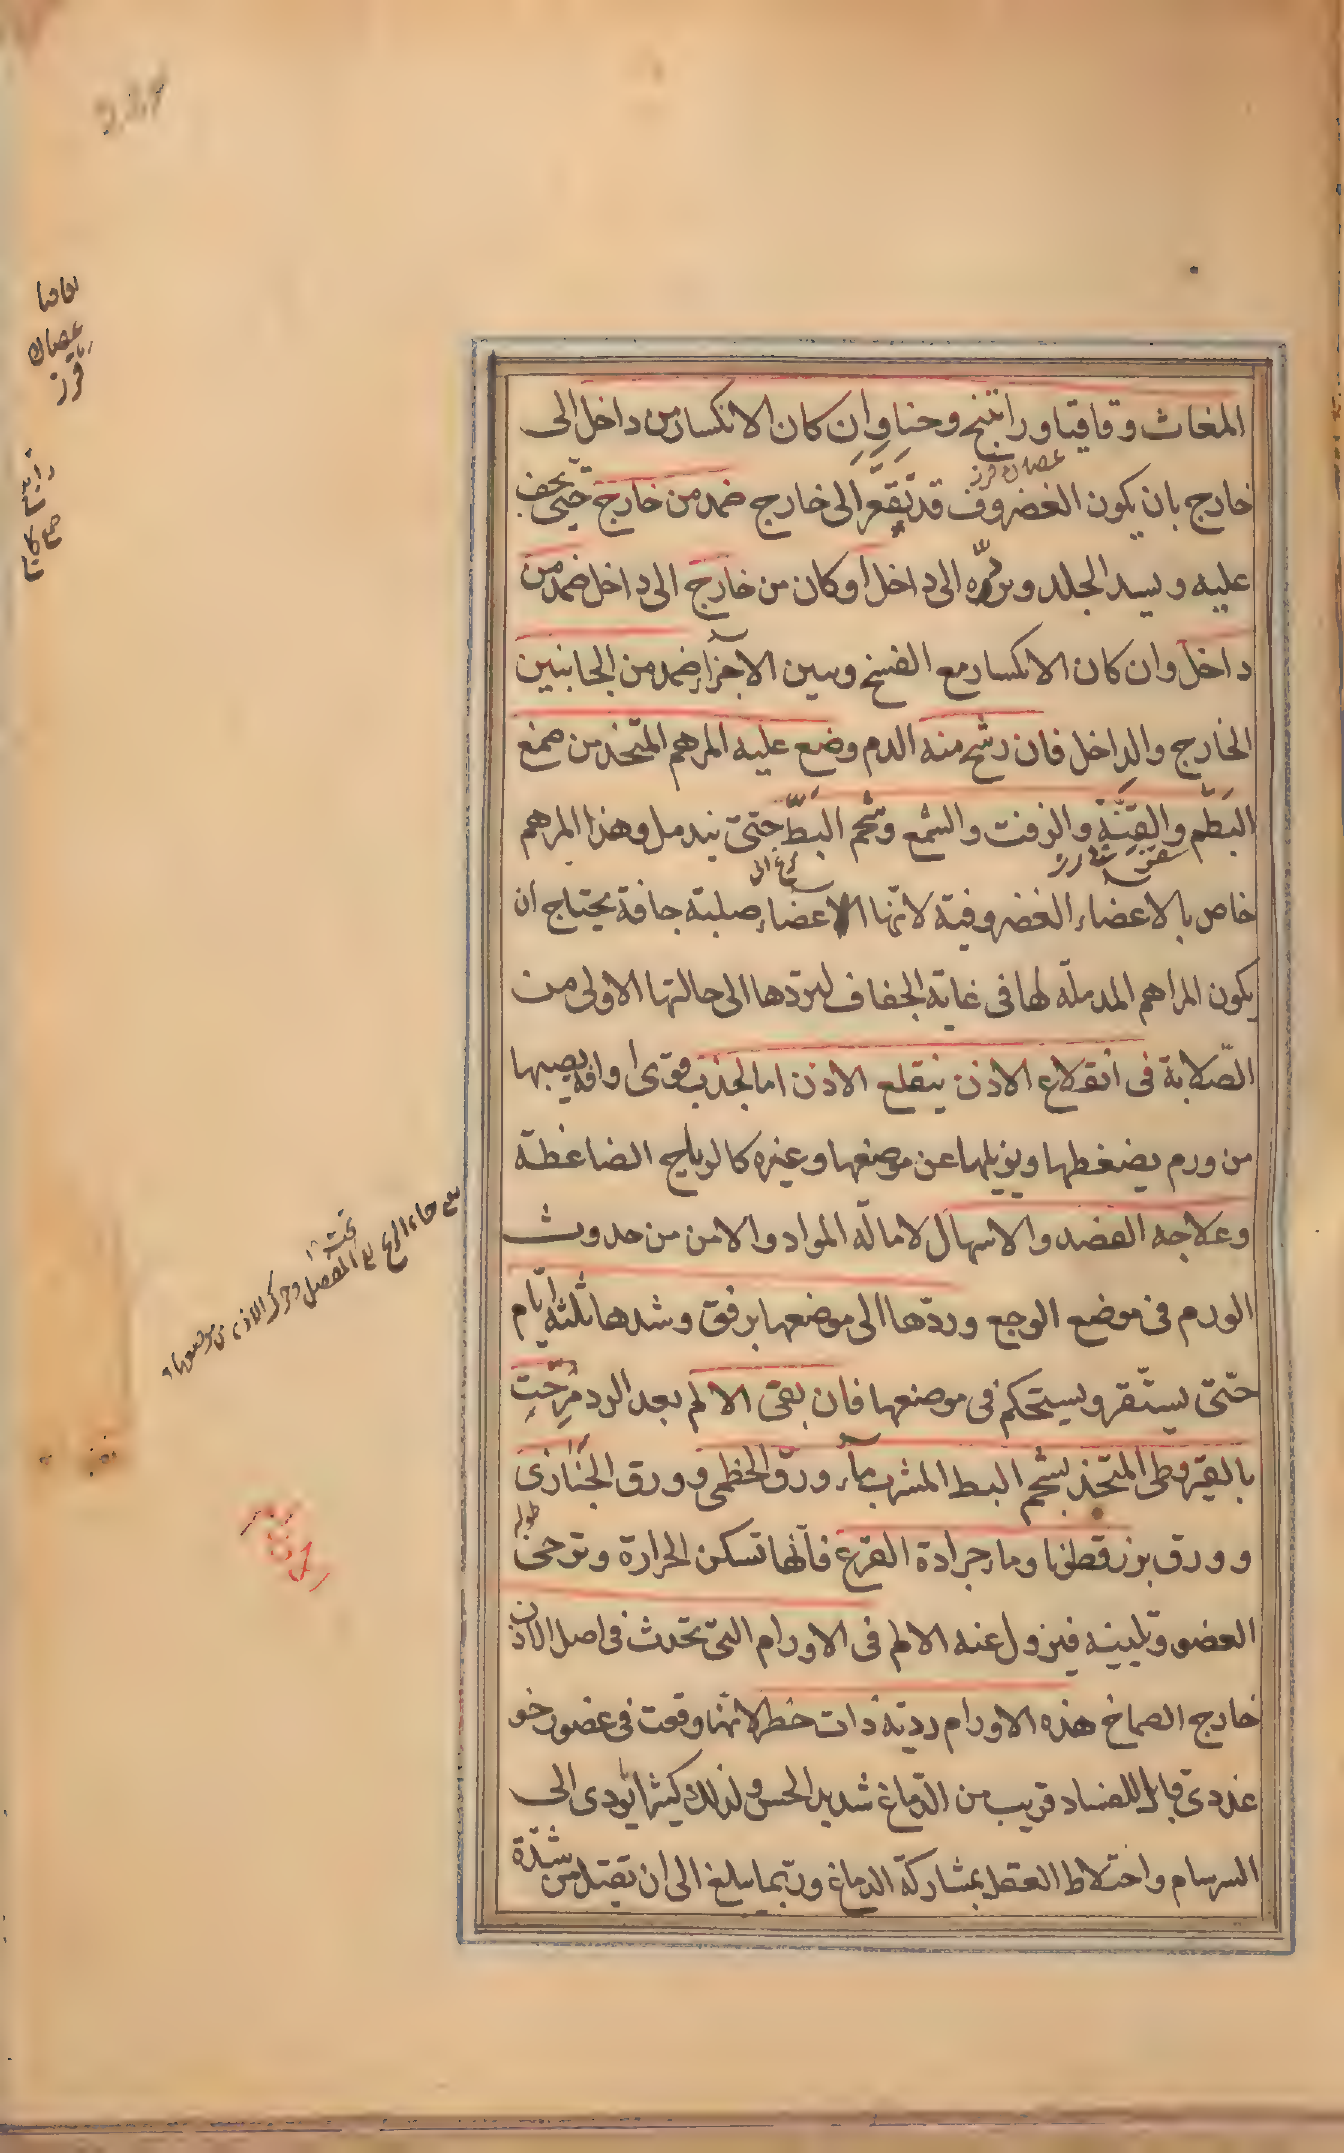 المغاث وقاقيا وراتينج وحنا وان كان الانكسار من داخل الى
خارج بان يكون الغضروف قد تقعّر الى خارج ضمد من خارج حتى يجف
عليه ويسد الجلد ويردّه الى داخل او كان من خارج الى داخل ضمد من
داخل وان كان الانكسار مع الفسخ وبين الاجزاء ضمد من الجانبين
الخارج والداخل فان رشح منه الدم وضع عليه المرهم المتخذ من صمغ
البطم والقنّة والزفت والشمع وشحم البطّ حتى يندمل وهذا المرهم
خاص بالاعضاء الغضروفية لانها اعضاء صلبة جافة يحتاج ان
يكون المراهم المدملة لها فى غاية الجفاف ليردّها الى حالتها الاولى من
الصّلابة فى انقلاع الاذن ينقلع الاذن اما لجذب قوى او افة يصيبها
من ورم يضغطها ويزيلها عن موضعها وغيره كالرياح الضاغطة
وعلاجه الفصد والاسهال لامالة المواد والامن من حدوث
الورم فى موضع الوجع وردّها الى موضعها برفق وشدها ثلثة ايّام
حتّى يستقر ويستحكم فى موضعها فان بقى الالم بعد الرد مرّخت
بالقيروطى المتخذ بشحم البط المشرب بماء ورق الخطمى وورق الخبّازى
وورق بزرقطونا وماء جرادة القرع فانّها تسكن الحرارة وترخى
العضو وتليينه فيزول عنه الالم فى الاورام التى تحدث فى اصل الاذن
خارج الصماخ هذه الاورام رديّة ذات خطر لانّها وقعت فى عضو رخو
غددى قابل للفساد قريب من الدّماغ شديد الحس ولذلك كثيرا يؤدى الى
السرسام واختلاط العقل بمشاركة الدماغ وربّما يبلغ الى ان تقتل من شدّة